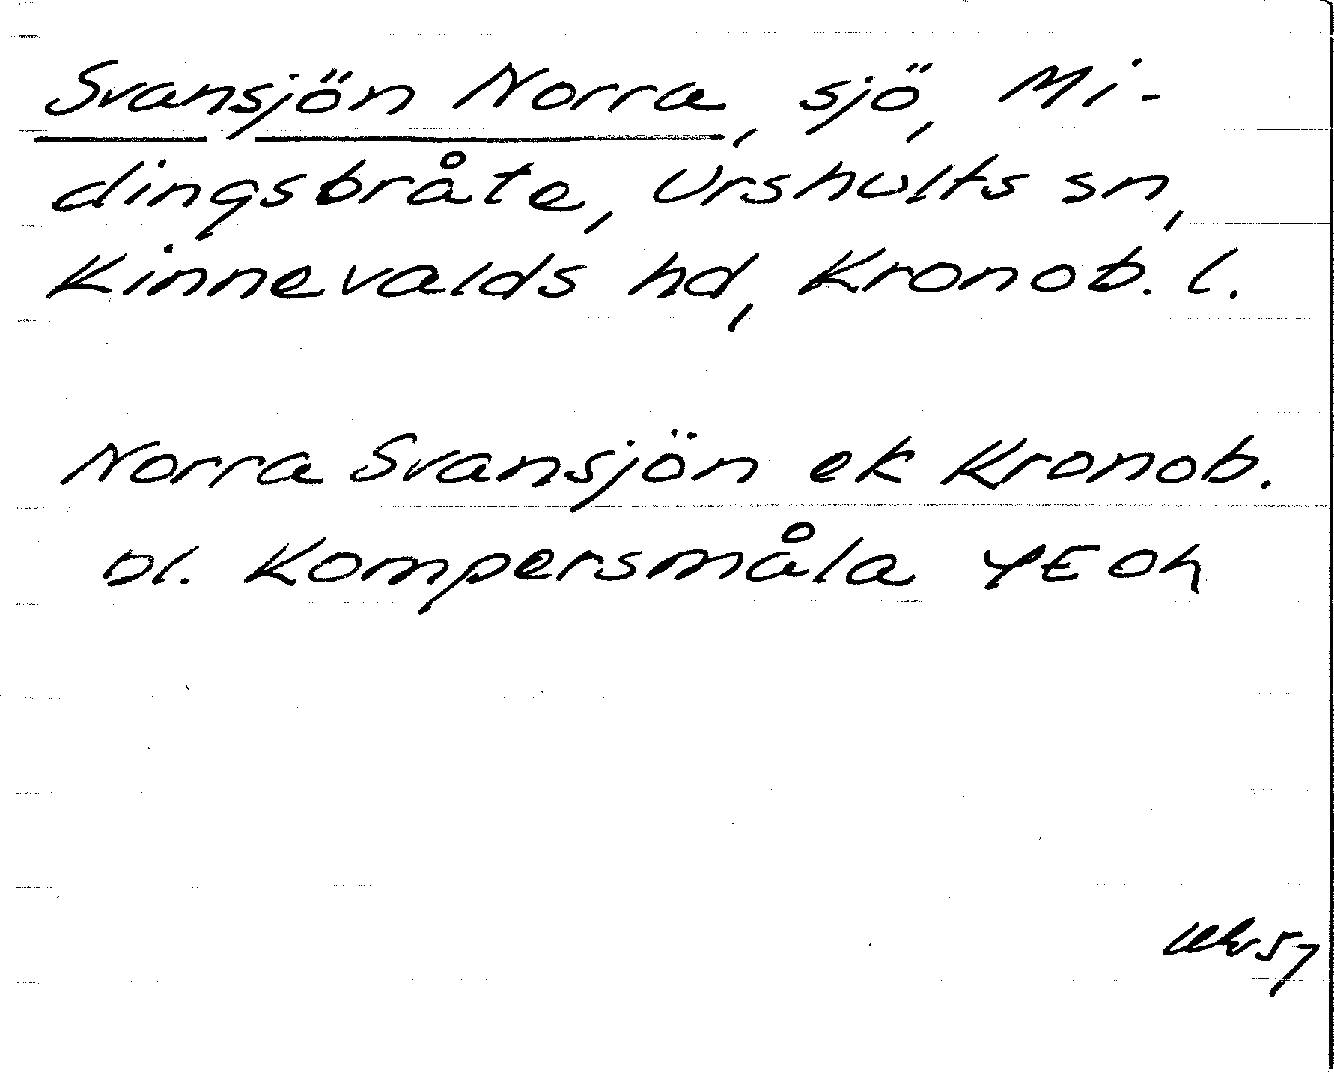 Svansjön Norra, sjö, Mi-
dingsbråte, Urshults sn,
Kinnevalds hd, Kronob. l.
Norra Svansjön ek Kronob.
bl. Kompersmåla